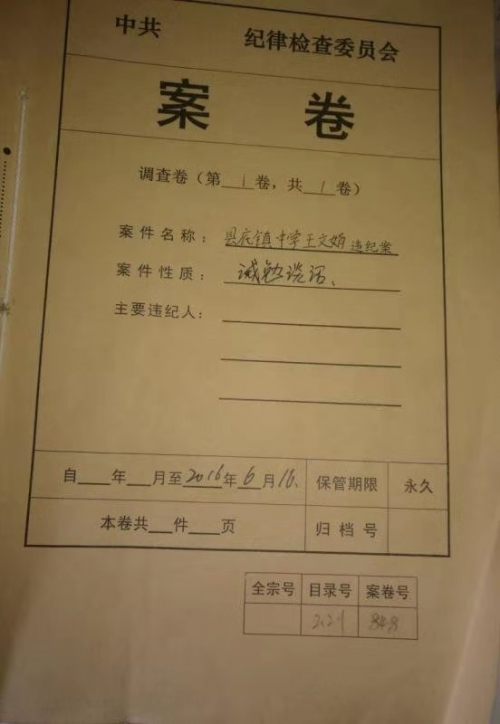 中共 纪律检查委员会
案 卷
调查卷（第 1 卷，共 1 卷）
案件名称： 镇中学王文娟违纪案
案件性质： 诫勉谈话、
主要违纪人：
自 年 月至2016年6月16、 保管期限 永久
本卷共 件 页 归档号
全宗号 目录号 案卷号
848